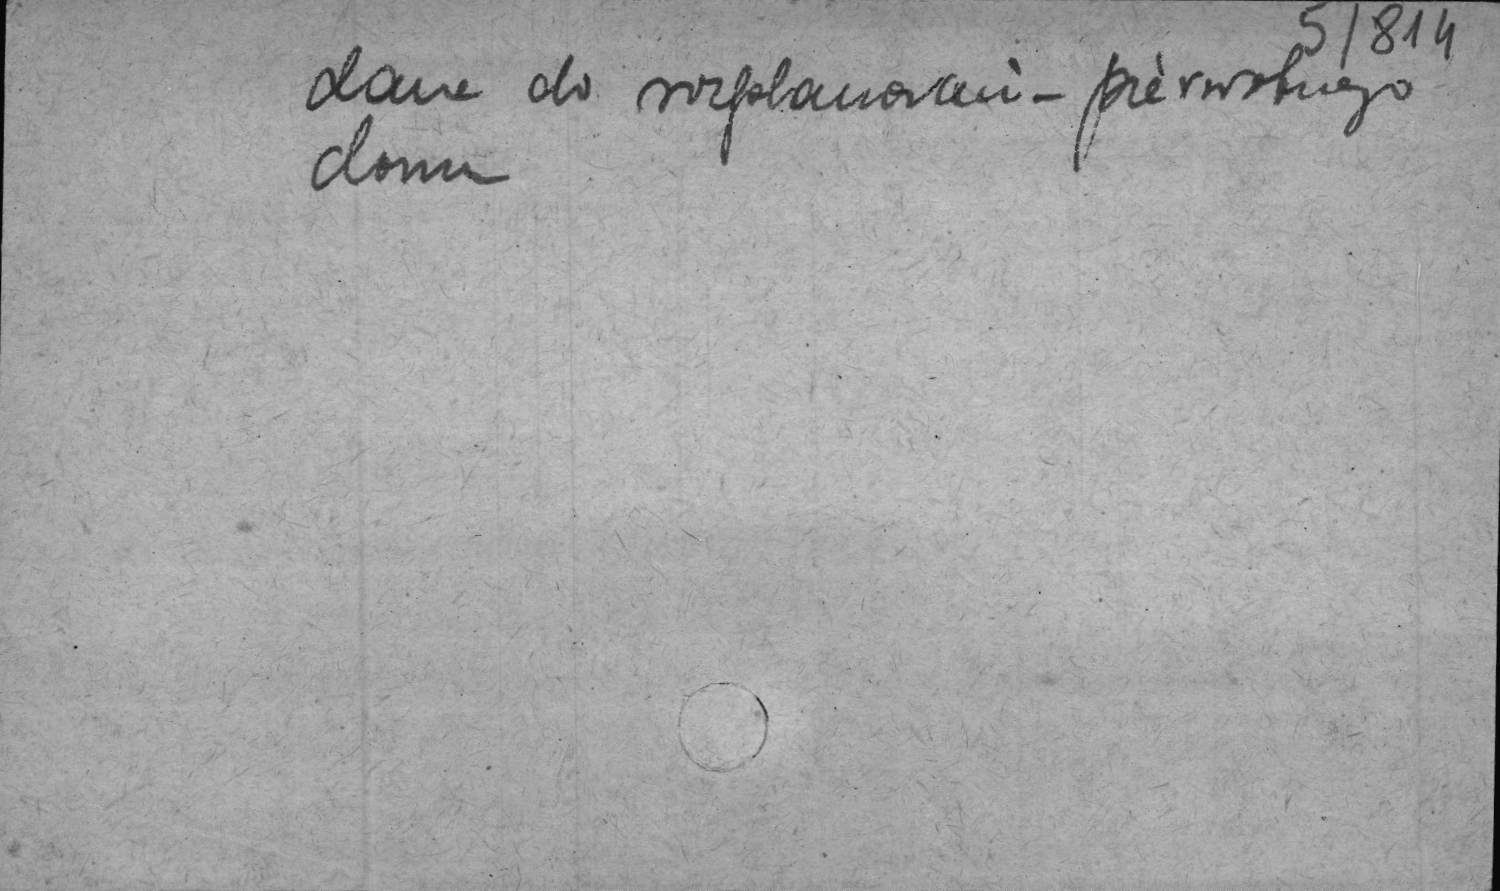 5/814
dane do rozplanowani – pierwotnego
domu